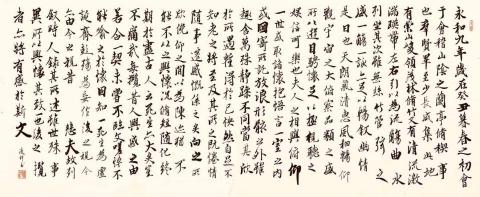 永和九年歲在癸丑暮春之初會
于會稽山陰之蘭亭脩稧事
也群賢畢至少長咸集此地
有崇山峻領茂林脩竹又有清流激
湍暎帶左右引以為流觴曲水
列坐其次雖無絲竹管弦之
盛一觴一詠亦足以暢叙幽情
是日也天朗氣清惠風和暢仰
觀宇宙之大俯察品類之盛
所以遊目騁懷足以極視聽之
娛信可樂也夫人之相與俯仰
一世或取諸懷抱悟言一室之內
或因寄所託放浪形骸之外雖
趣舍萬殊靜躁不同當其欣
於所遇暫得於己快然自足不
知老之將至及其所之既惓情
隨事遷感慨係之矣向之所
欣俛仰之間以為陳迹猶不
能不以之興懷況脩短隨化終
期於盡古人云死生亦大矣豈
不痛哉每攬昔人興感之由
若合一契未嘗不臨文嗟悼不
能喻之於懷固知一死生為虛
誕齊彭殤為妄作後之視今
亦由今之視昔悲夫故列
叙時人錄其所述雖世殊事
異所以興懷其致一也後之攬
者亦將有感於斯文